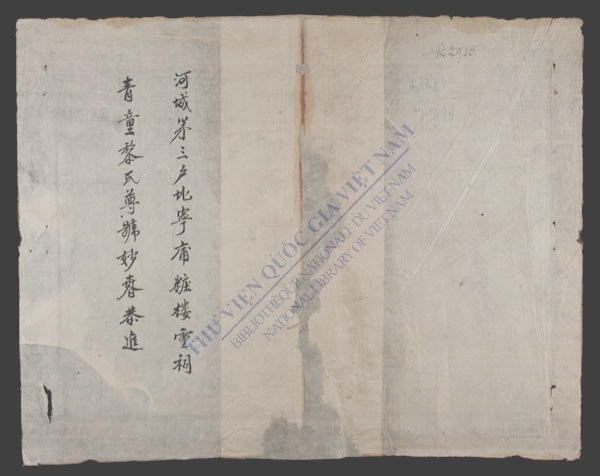 R.2910
河城第三户北寧甫粧楼靈祠
青童黎氏尊號妙春恭進
THƯ VIỆN QUỐC GIA VIỆT NAM
BIBLIOTHÈQUE NATIONALE DU VIETNAM
NATIONAL LIBRARY OF VIETNAM